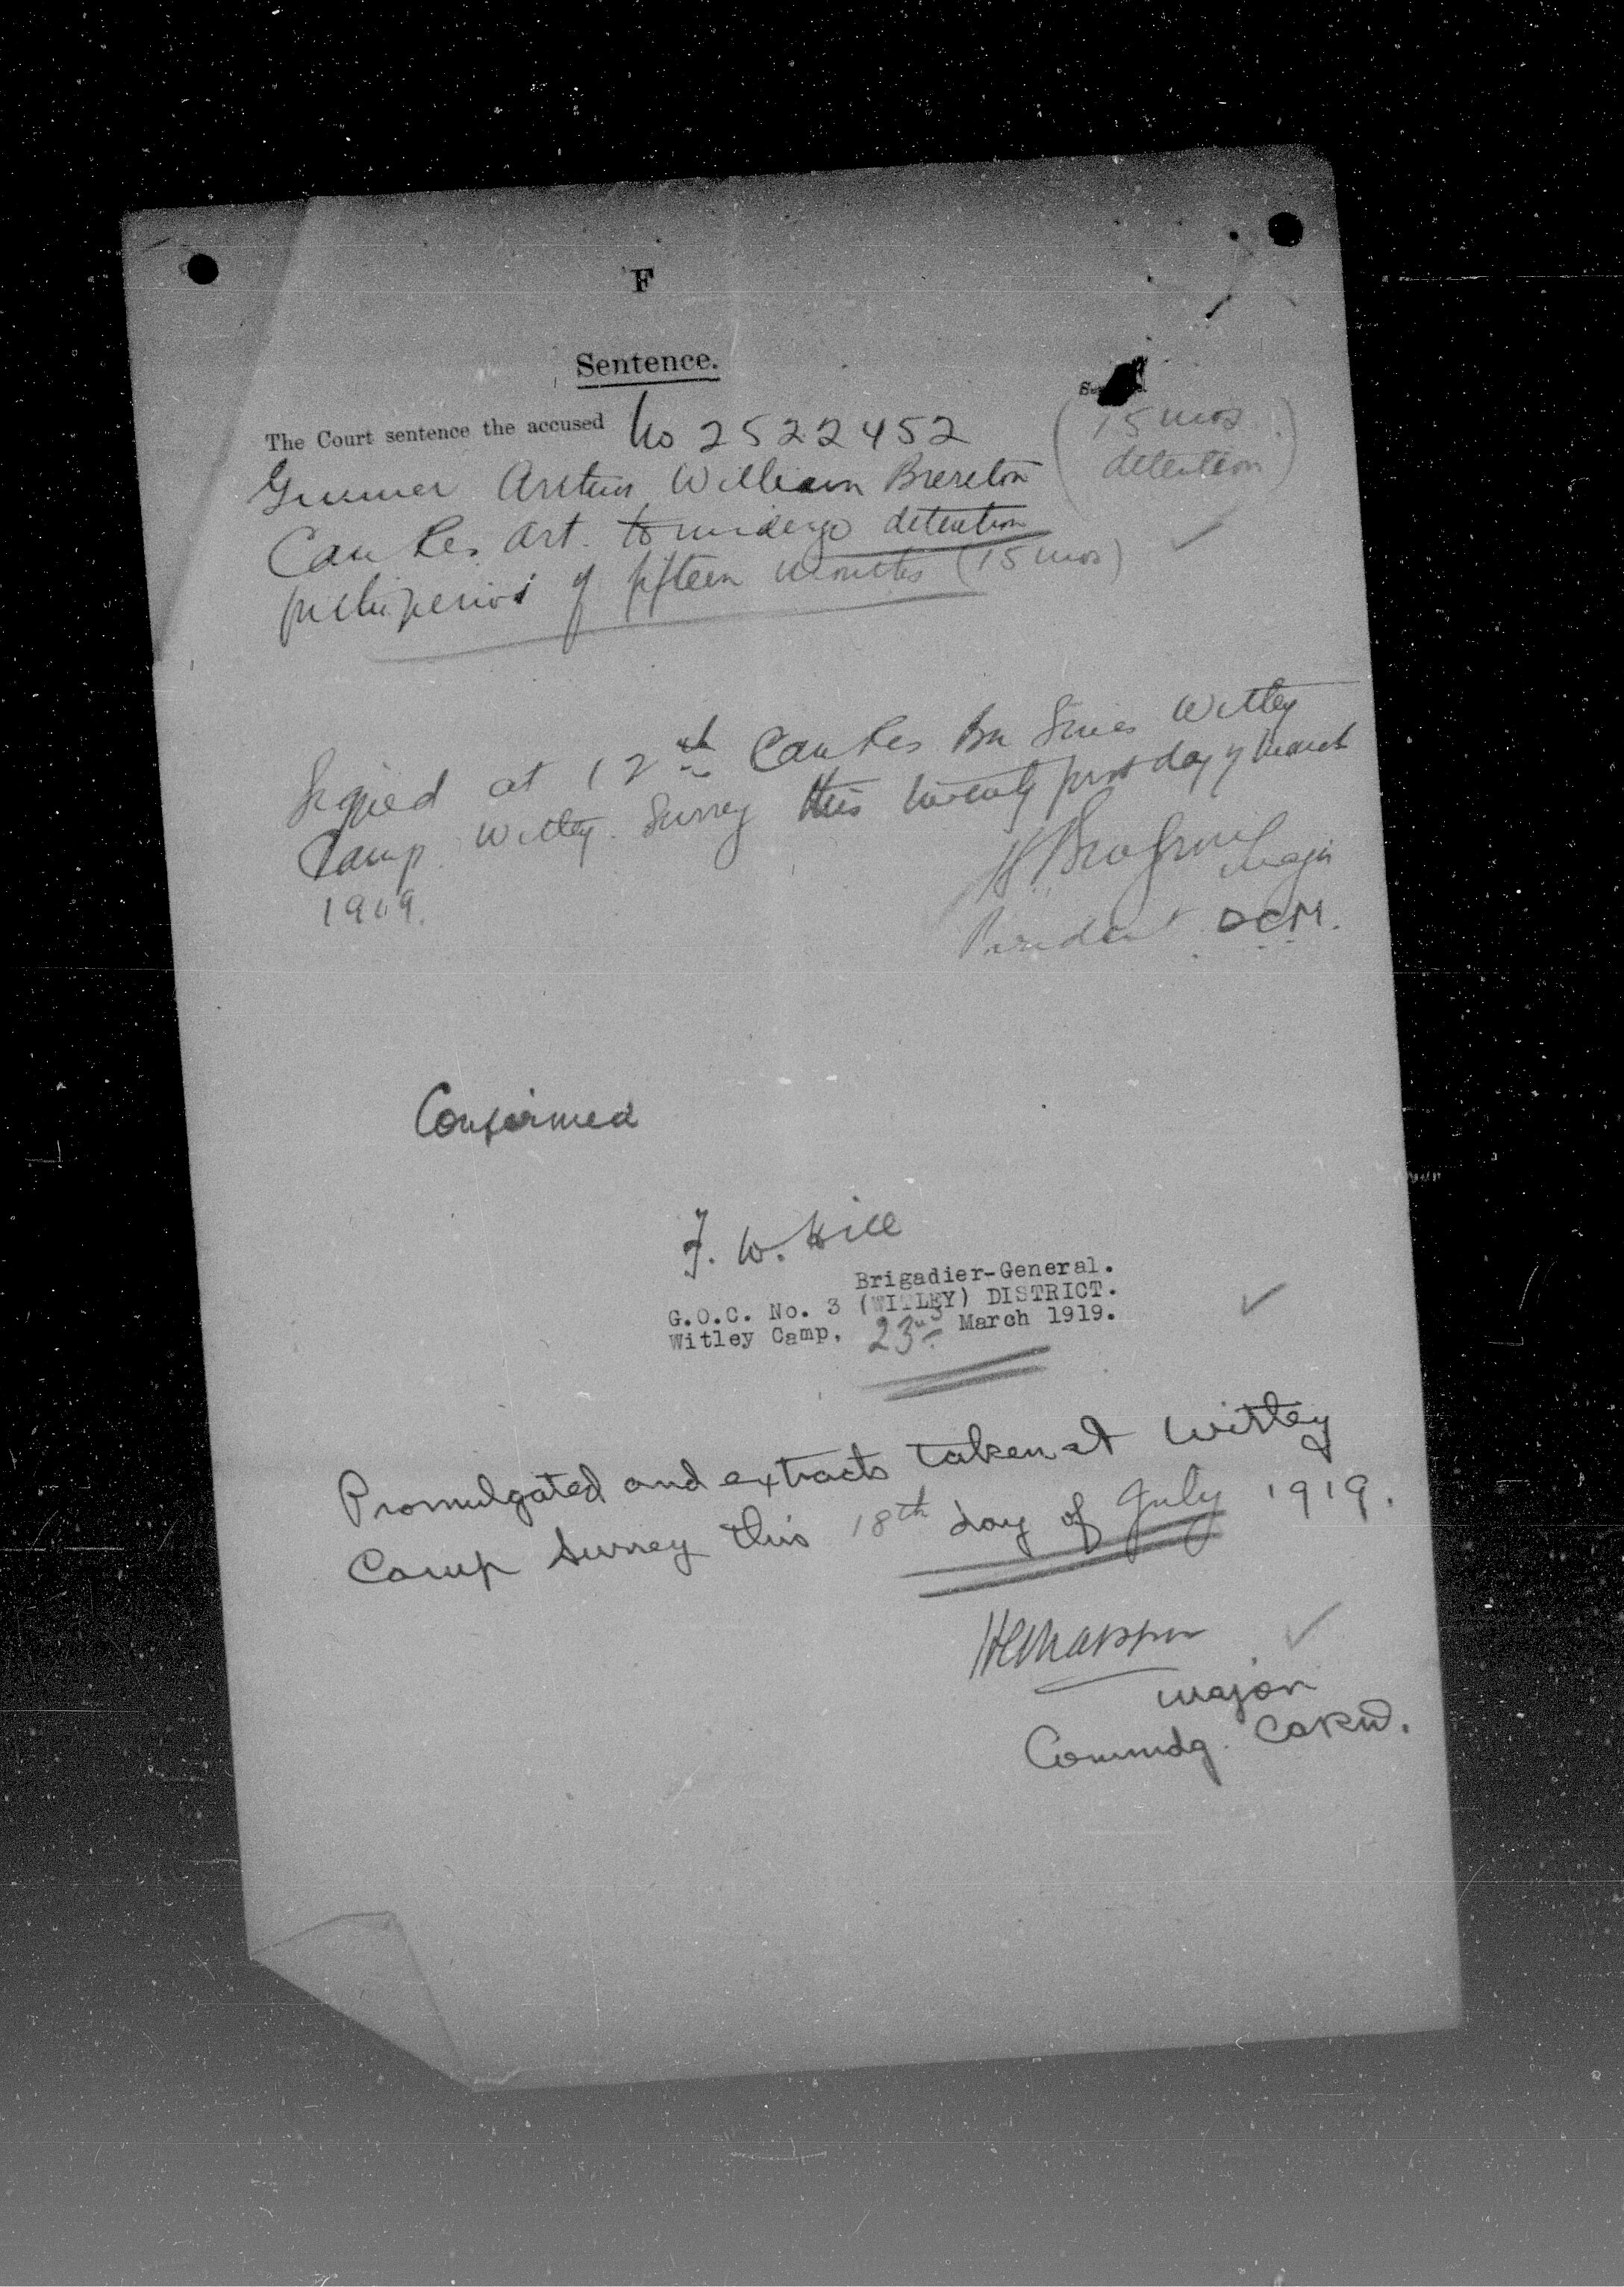 F
Sentence.
The Court sentence the accused No 2522452
Gunner Arthur William Brereton
(15 mos
detention)
Can Res. Art. to undergo detention
for the period of fifteen months (15 mos)
Signed at 12th Can Res Bn Lines Witley
Camp. Witley. Surrey this twenty first day of March
1919.
Major
President DCM.
Confirmed
F. W. Hill
Brigadier-General.
G.O.C. No. 3 (WITLEY) DISTRICT.
Witley Camp, 23rd March 1919.
Promulgated and extracts taken at Witley
Camp Surrey this 18th day of July 1919.
Major
Commdg.